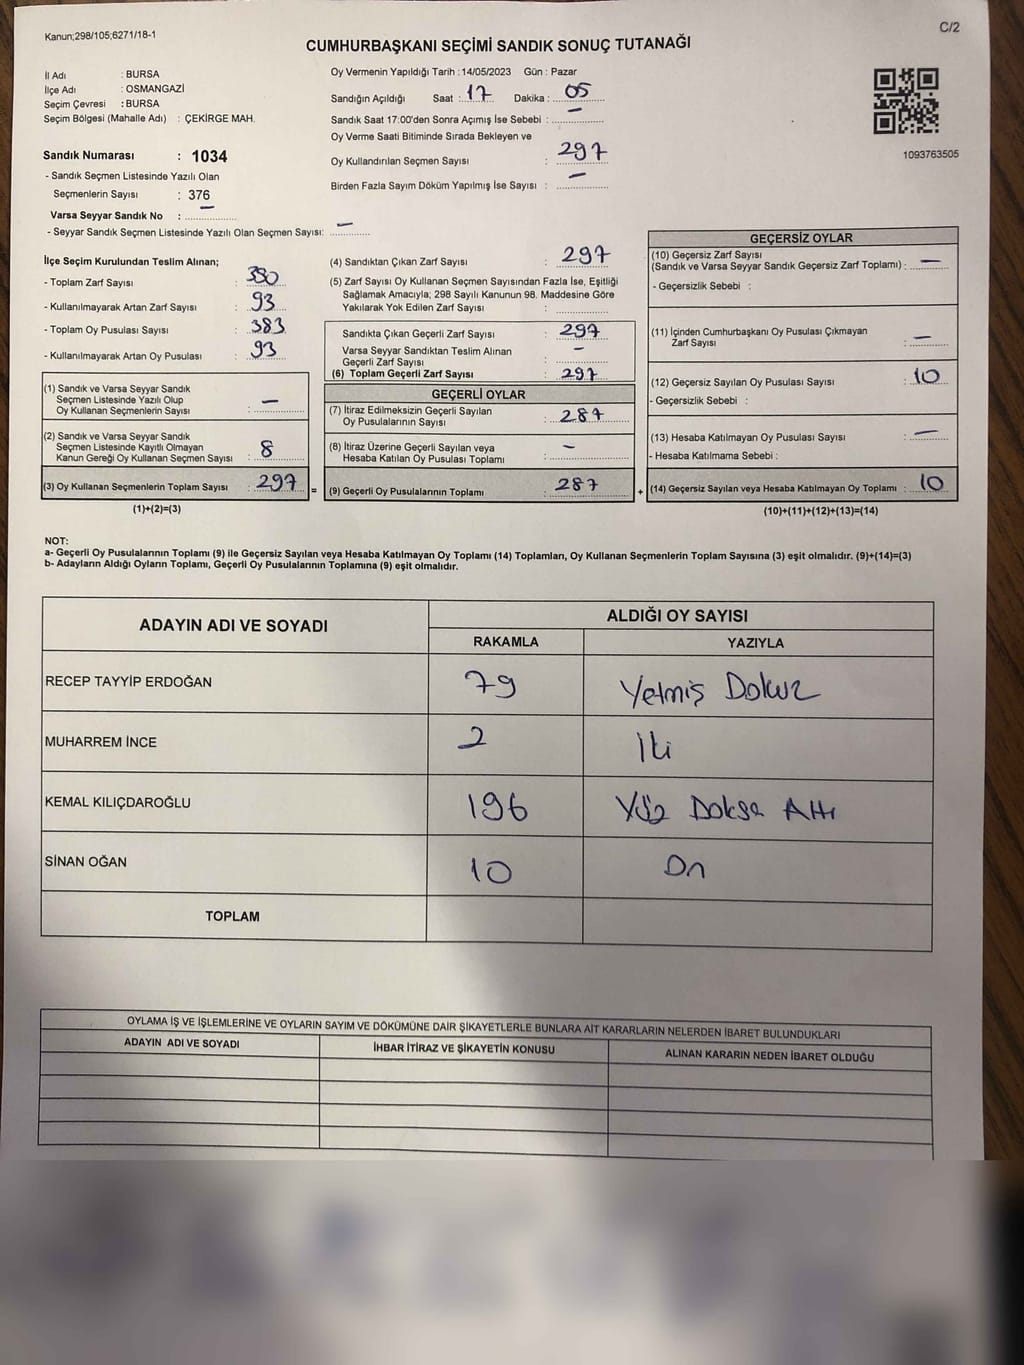 Kanun;298/105;6271/18-1
C/2
CUMHURBAŞKANI SEÇİMİ SANDIK SONUÇ TUTANAĞI
İl Adı : BURSA
İlçe Adı : OSMANGAZİ
Seçim Çevresi : BURSA
Seçim Bölgesi (Mahalle Adı) : ÇEKİRGE MAH.
Sandık Numarası : 1034
- Sandık Seçmen Listesinde Yazılı Olan
Seçmenlerin Sayısı : 376
Varsa Seyyar Sandık No : –
- Seyyar Sandık Seçmen Listesinde Yazılı Olan Seçmen Sayısı: –
Oy Vermenin Yapıldığı Tarih : 14/05/2023 Gün : Pazar
Sandığın Açıldığı Saat : 17 Dakika : 05
Sandık Saat 17:00'den Sonra Açımış İse Sebebi : –
Oy Verme Saati Bitiminde Sırada Bekleyen ve
Oy Kullandırılan Seçmen Sayısı : 297
Birden Fazla Sayım Döküm Yapılmış İse Sayısı : –
1093763505
İlçe Seçim Kurulundan Teslim Alınan;
- Toplam Zarf Sayısı : 380
- Kullanılmayarak Artan Zarf Sayısı : 93
- Toplam Oy Pusulası Sayısı : 383
- Kullanılmayarak Artan Oy Pusulası : 93
(1) Sandık ve Varsa Seyyar Sandık
Seçmen Listesinde Yazılı Olup
Oy Kullanan Seçmenlerin Sayısı : –
(2) Sandık ve Varsa Seyyar Sandık
Seçmen Listesinde Kayıtlı Olmayan
Kanun Gereği Oy Kullanan Seçmen Sayısı : 8
(3) Oy Kullanan Seçmenlerin Toplam Sayısı : 297
(1)+(2)=(3)
(4) Sandıktan Çıkan Zarf Sayısı : 297
(5) Zarf Sayısı Oy Kullanan Seçmen Sayısından Fazla İse, Eşitliği
Sağlamak Amacıyla; 298 Sayılı Kanunun 98. Maddesine Göre
Yakılarak Yok Edilen Zarf Sayısı :
Sandıkta Çıkan Geçerli Zarf Sayısı : 297
Varsa Seyyar Sandıktan Teslim Alınan
Geçerli Zarf Sayısı : –
(6) Toplam Geçerli Zarf Sayısı : 297
GEÇERLİ OYLAR
(7) İtiraz Edilmeksizin Geçerli Sayılan
Oy Pusulalarının Sayısı : 287
(8) İtiraz Üzerine Geçerli Sayılan veya
Hesaba Katılan Oy Pusulası Toplamı : –
= (9) Geçerli Oy Pusulalarının Toplamı : 287
GEÇERSİZ OYLAR
(10) Geçersiz Zarf Sayısı
(Sandık ve Varsa Seyyar Sandık Geçersiz Zarf Toplamı) : –
- Geçersizlik Sebebi :
(11) İçinden Cumhurbaşkanı Oy Pusulası Çıkmayan
Zarf Sayısı : –
(12) Geçersiz Sayılan Oy Pusulası Sayısı : 10
- Geçersizlik Sebebi :
(13) Hesaba Katılmayan Oy Pusulası Sayısı : –
- Hesaba Katılmama Sebebi :
+ (14) Geçersiz Sayılan veya Hesaba Katılmayan Oy Toplamı : 10
(10)+(11)+(12)+(13)=(14)
NOT:
a- Geçerli Oy Pusulalarının Toplamı (9) ile Geçersiz Sayılan veya Hesaba Katılmayan Oy Toplamı (14) Toplamları, Oy Kullanan Seçmenlerin Toplam Sayısına (3) eşit olmalıdır. (9)+(14)=(3)
b- Adayların Aldığı Oyların Toplamı, Geçerli Oy Pusulalarının Toplamına (9) eşit olmalıdır.
ADAYIN ADI VE SOYADI
ALDIĞI OY SAYISI
RAKAMLA YAZIYLA
RECEP TAYYİP ERDOĞAN 79 Yetmiş Dokuz
MUHARREM İNCE 2 İki
KEMAL KILIÇDAROĞLU 196 Yüz Doksa Altı
SİNAN OĞAN 10 On
TOPLAM
OYLAMA İŞ VE İŞLEMLERİNE VE OYLARIN SAYIM VE DÖKÜMÜNE DAİR ŞİKAYETLERLE BUNLARA AİT KARARLARIN NELERDEN İBARET BULUNDUKLARI
ADAYIN ADI VE SOYADI İHBAR İTİRAZ VE ŞİKAYETİN KONUSU ALINAN KARARIN NEDEN İBARET OLDUĞU